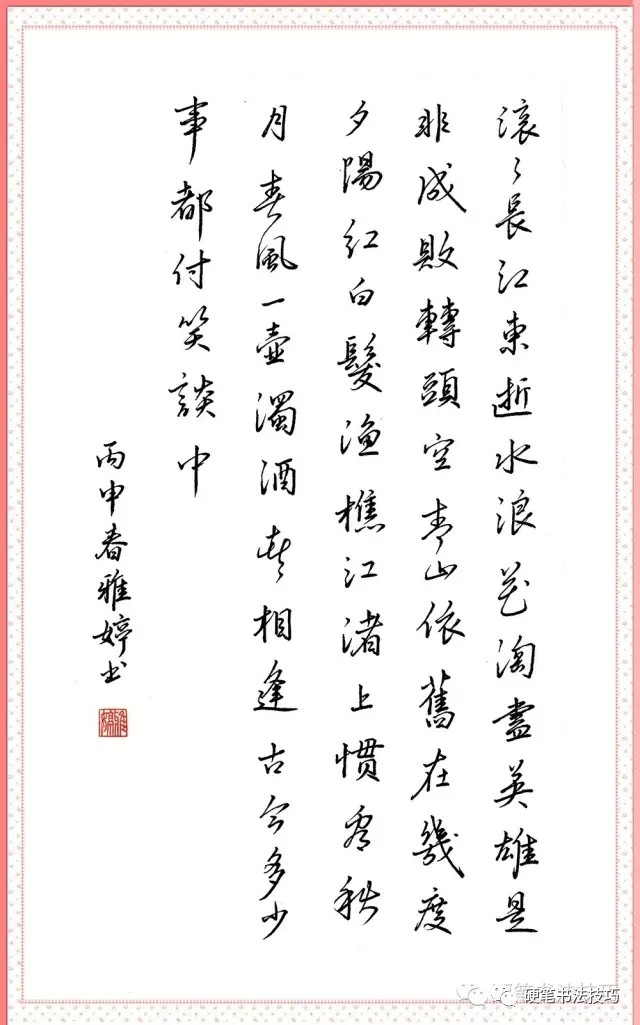 滚〻長江東逝水浪花淘盡英雄是
非成敗轉頭空青山依舊在幾度
夕陽红白髮漁樵江渚上惯看秋
月春風一壶濁酒喜相逢古今多少
事都付笑談中
丙申春雅婷书
硬笔书法技巧